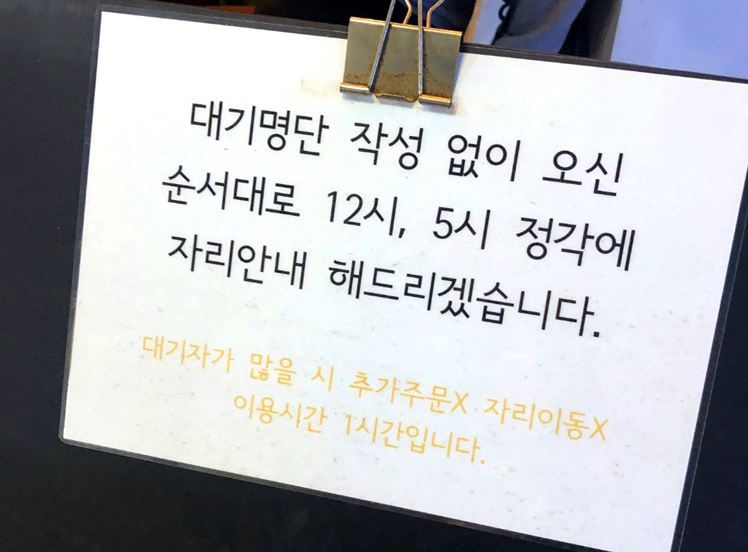 대기명단 작성 없이 오신
순서대로 12시, 5시 정각에
자리안내 해드리겠습니다.
대기자가 많을 시 추가주문X 자리이동X
이용시간 1시간입니다.